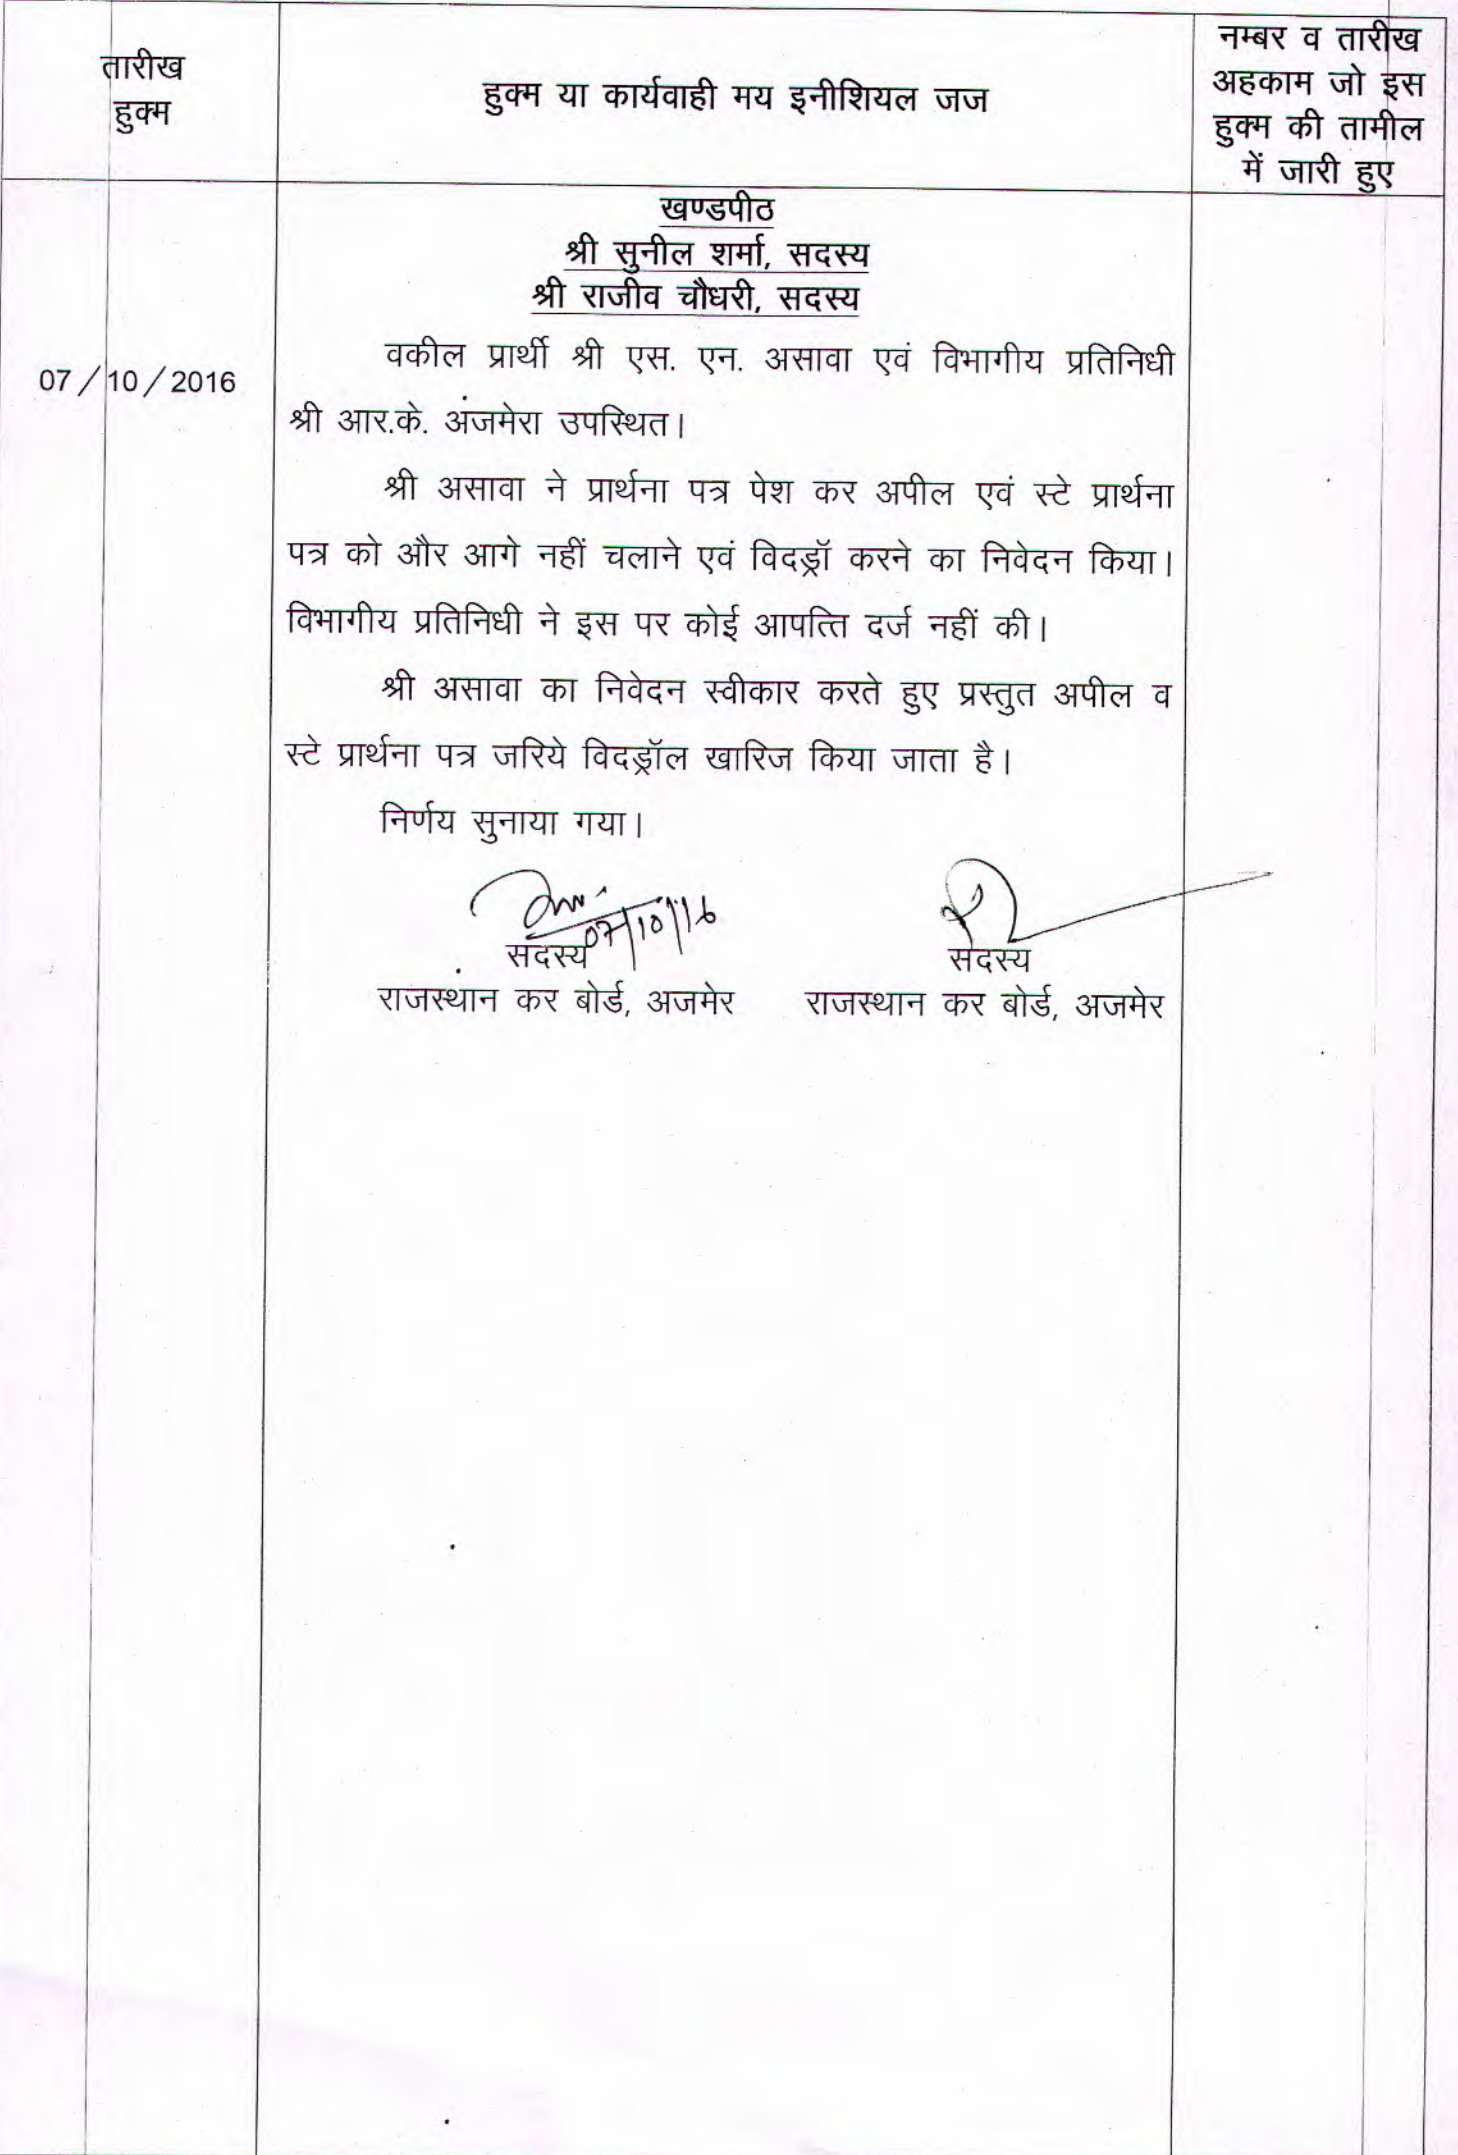 तारीख
हुक्म
हुक्म या कार्यवाही मय इनीशियल जज
नम्बर व तारीख
अहकाम जो इस
हुक्म की तामील
में जारी हुए
खण्डपीठ
श्री सुनील शर्मा, सदस्य
श्री राजीव चौधरी, सदस्य
07/10/2016
वकील प्रार्थी श्री एस. एन. असावा एवं विभागीय प्रतिनिधी
श्री आर.के. अजमेरा उपस्थित।
श्री असावा ने प्रार्थना पत्र पेश कर अपील एवं स्टे प्रार्थना
पत्र को और आगे नहीं चलाने एवं विदड्रॉ करने का निवेदन किया।
विभागीय प्रतिनिधी ने इस पर कोई आपत्ति दर्ज नहीं की।
श्री असावा का निवेदन स्वीकार करते हुए प्रस्तुत अपील व
स्टे प्रार्थना पत्र जरिये विदड्रॉल खारिज किया जाता है।
निर्णय सुनाया गया।
07/10/16
सदस्य सदस्य
राजस्थान कर बोर्ड, अजमेर राजस्थान कर बोर्ड, अजमेर